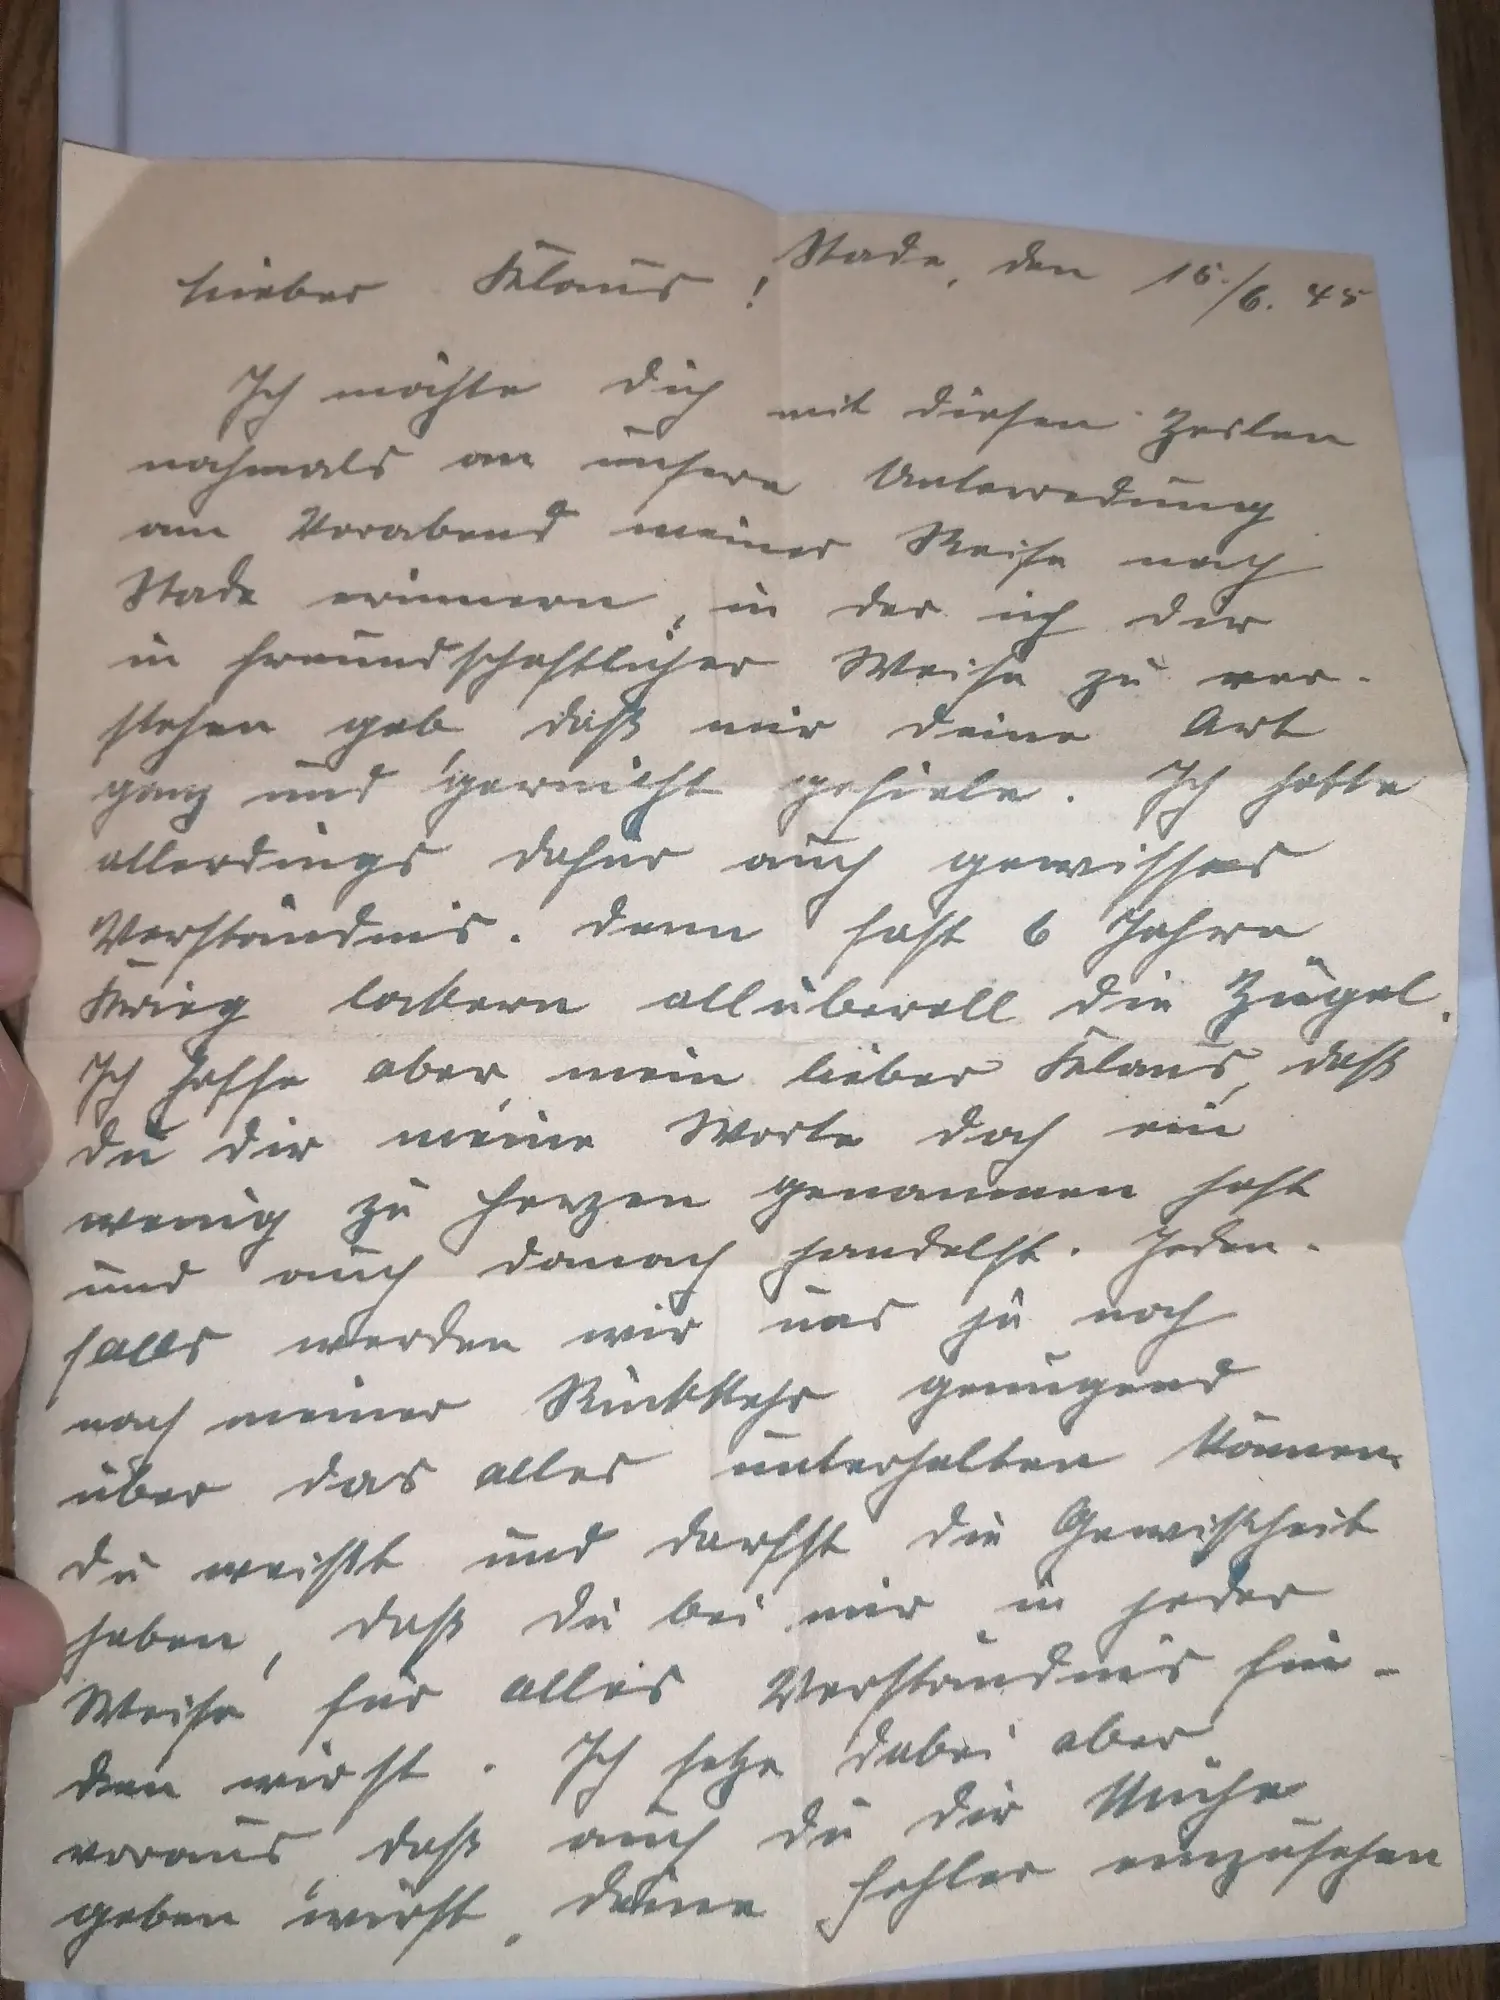 Stade, den 15./6. 45
Lieber Klaus!
Ich möchte dich mit diesen Zeilen
nochmals an unsere Unterredung
am Vorabend meiner Reise nach
Stade erinnern, in der ich dir
in freundschaftlicher Weise zu ver-
stehen gab, daß mir deine Art
ganz und garnicht gefiele. Ich hatte
allerdings dafür auch gewisses
Verständnis. denn fast 6 Jahre
Krieg lockern allüberall die Zügel.
Ich hoffe aber, mein lieber Klaus, daß
du dir meine Worte doch ein
wenig zu Herzen genommen hast
und auch danach handelst. Jeden-
falls werden wir uns ja noch
nach meiner Rückkehr genügend
über das alles unterhalten können.
Du weißt und darfst die Gewißheit
haben, daß du bei mir in jeder
Weise für alles Verständnis fin-
den wirst. Ich setze dabei aber
voraus, daß auch du dir Mühe
geben wirst, deine Fehler einzusehen